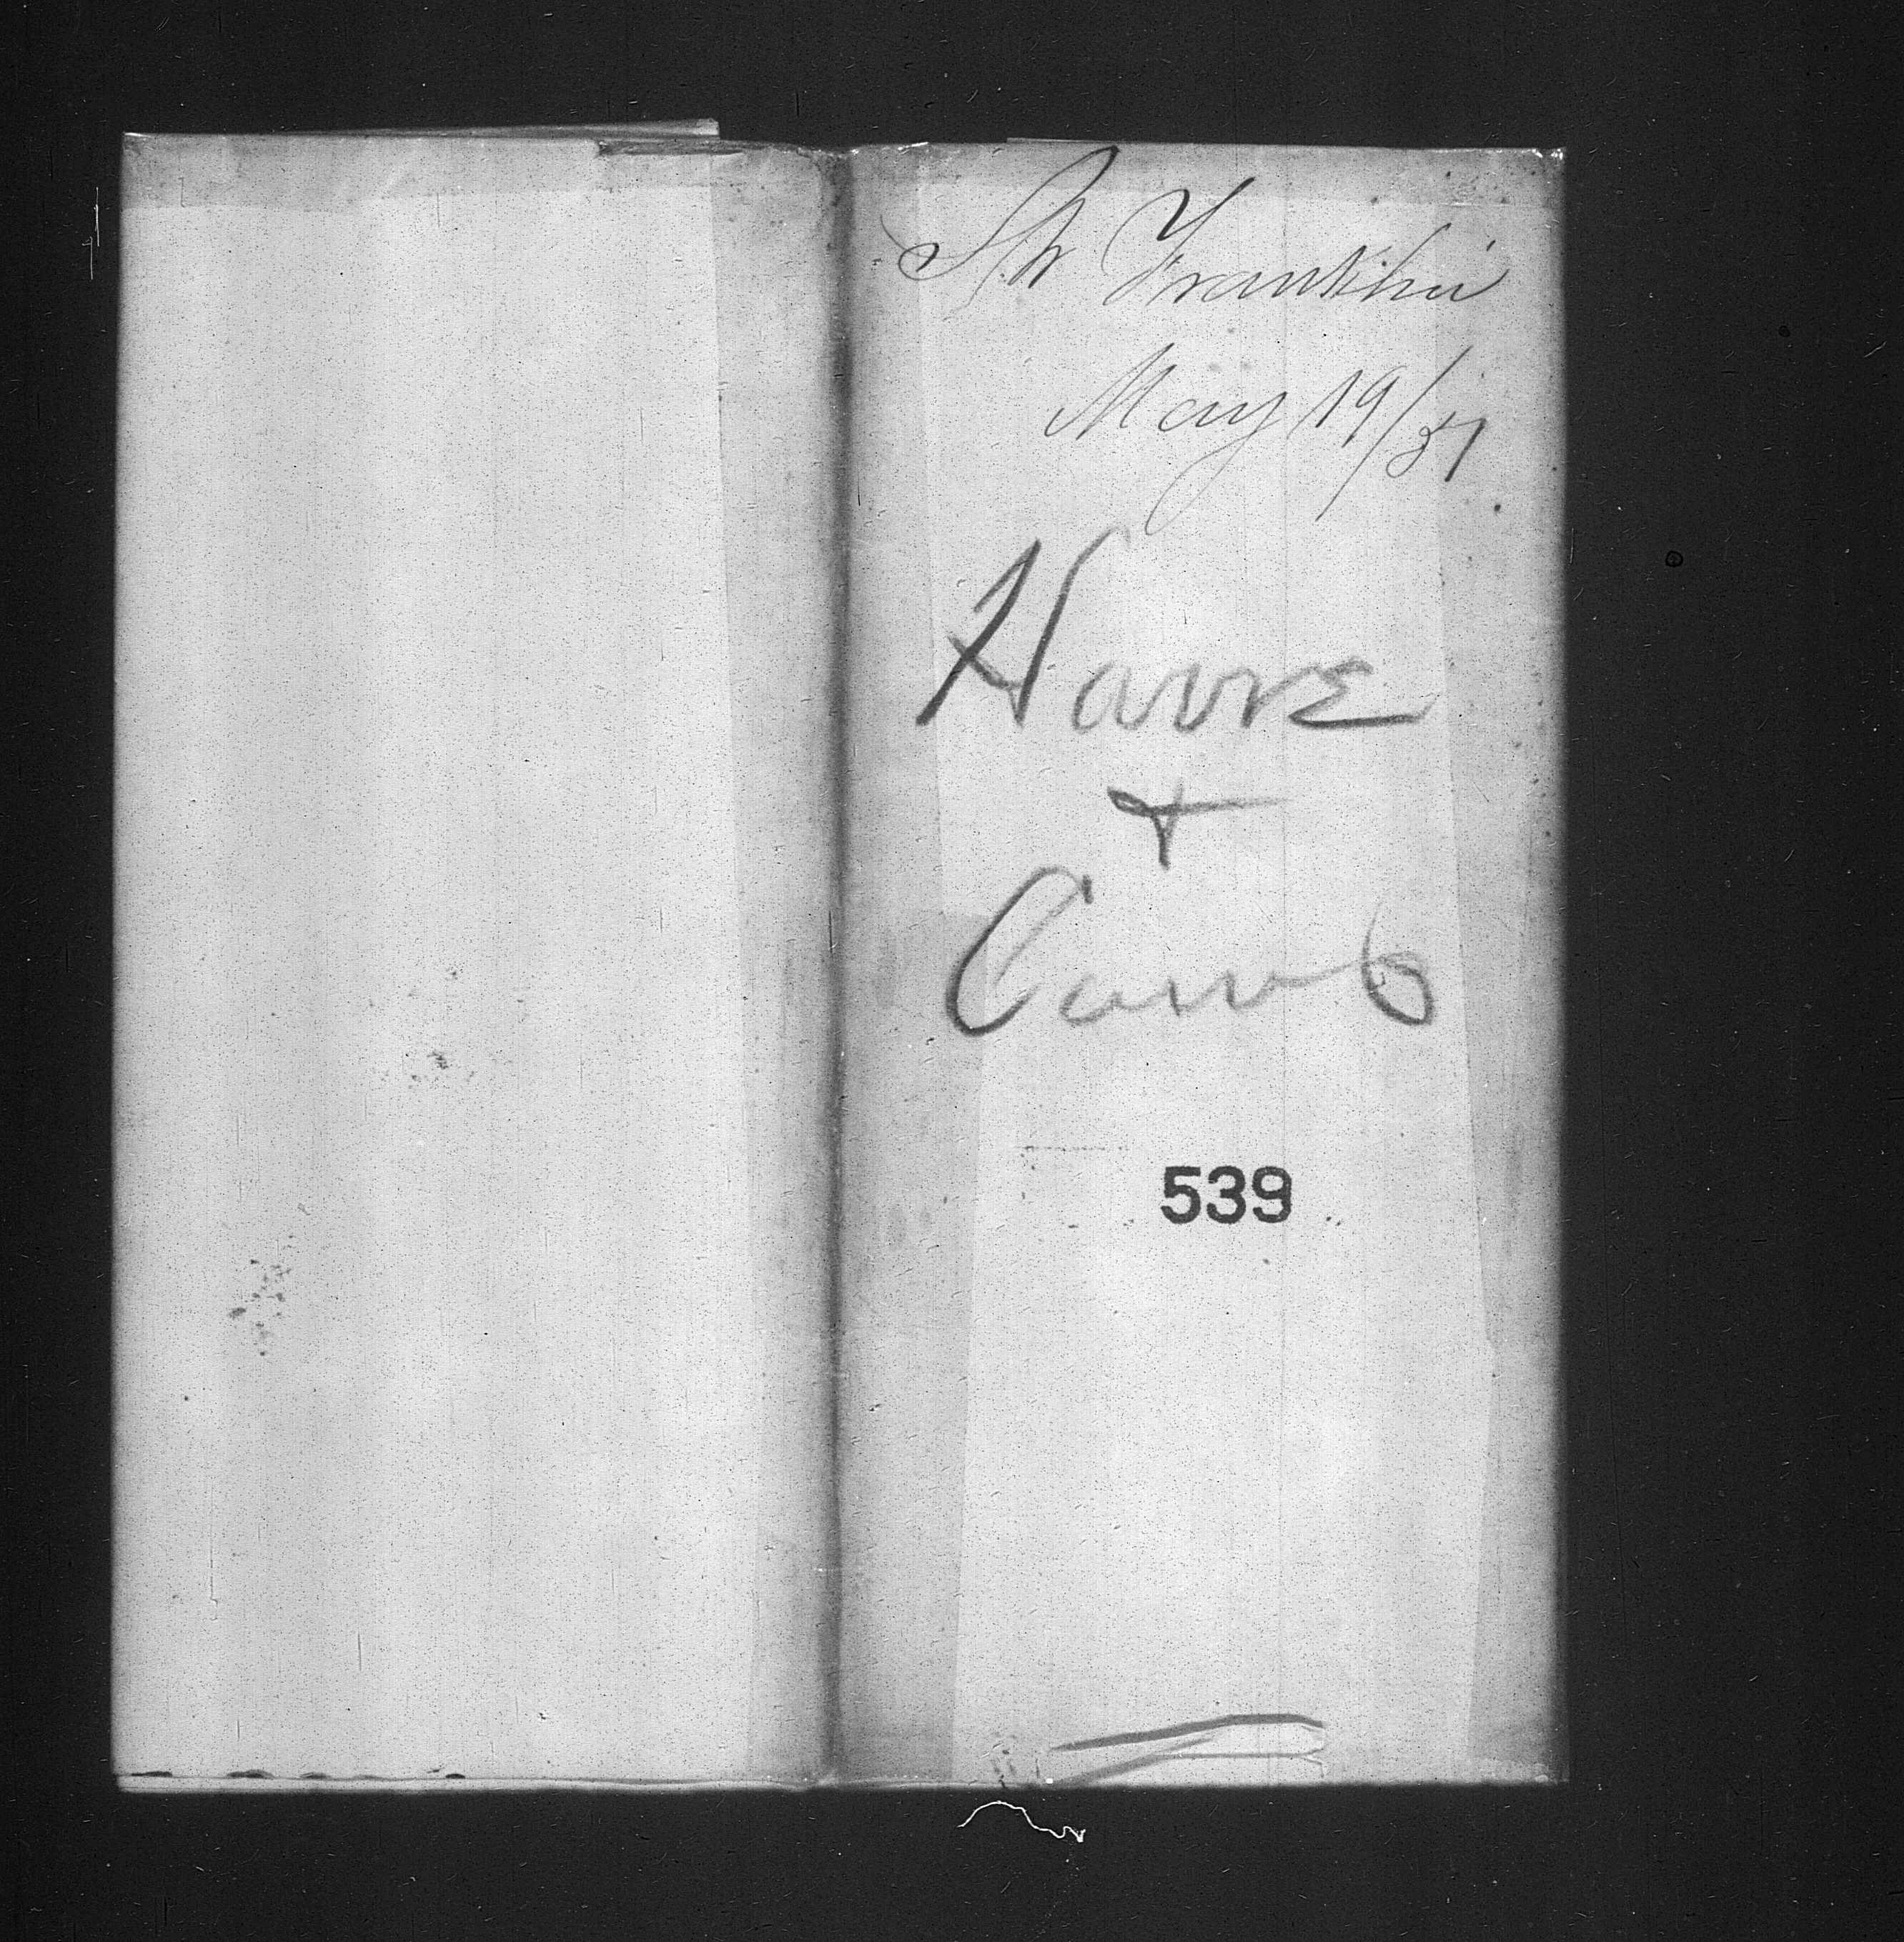 Str Franklin
May 19/57
Havre
+
Canb
539